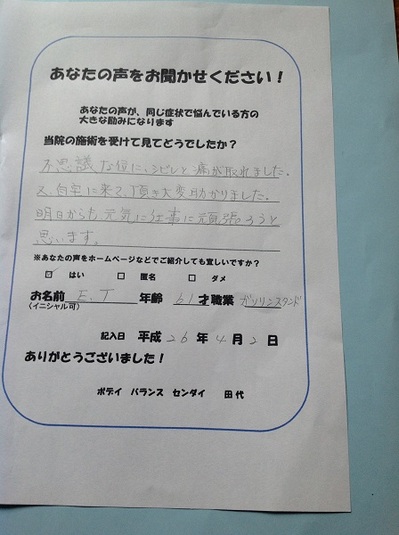 あなたの声をお聞かせください！
あなたの声が、同じ症状で悩んでいる方の
大きな励みになります
当院の施術を受けて見てどうでしたか？
不思議な位に、シビレと痛が取れました。
又、自宅に来て頂き大変助かりました。
明日からも元気に仕事に頑張ろうと
思います。
※あなたの声をホームページなどでご紹介しても宜しいですか？
☑ はい □ 匿名 □ ダメ
お名前 E.T 年齢 61才 職業 ガソリンスタンド
(イニシャル可)
記入日 平成 26 年 4 月 2 日
ありがとうございました！
ボデイ バランス センダイ 田代